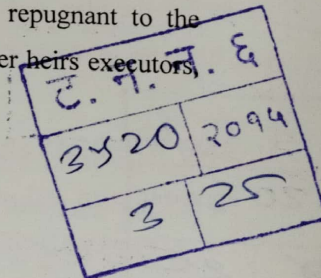 repugnant to the
er heirs executors,
ट. न. न. ६
3५20 २०१५
3 25